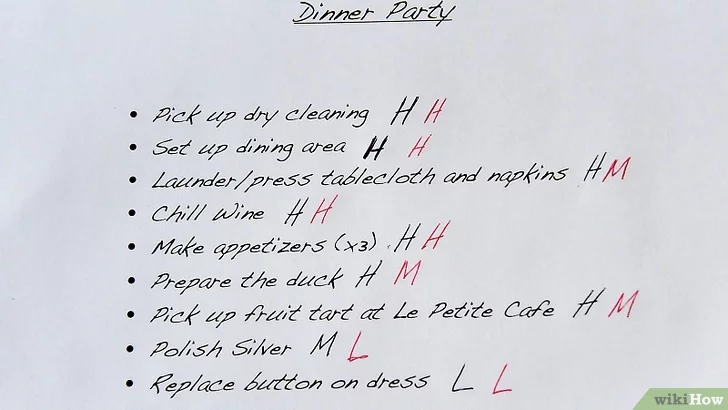 Dinner Party
• Pick up dry cleaning H H
• Set up dining area H H
• Launder/press tablecloth and napkins H M
• Chill Wine H H
• Make appetizers (x3). H H
• Prepare the duck H M
• Pick up fruit tart at Le Petite Cafe H M
• Polish Silver M L
• Replace button on dress L L
wikiHow